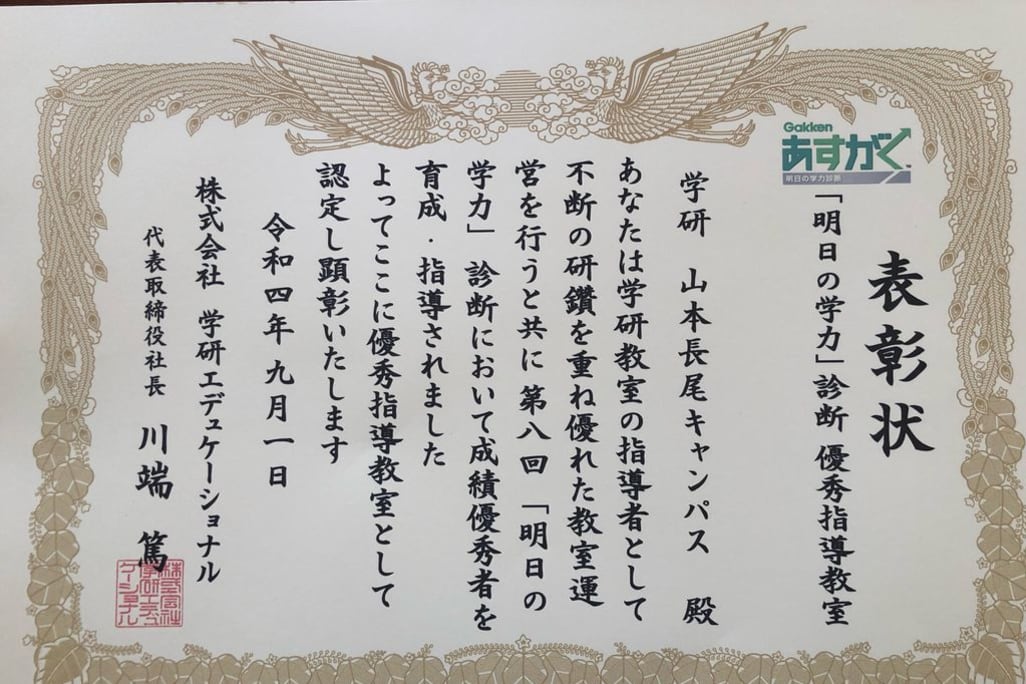 表彰状
Gakken
あすがく™
明日の学力診断
「明日の学力」診断 優秀指導教室
学研 山本長尾キャンパス 殿
あなたは学研教室の指導者として
不断の研鑽を重ね優れた教室運
営を行うと共に第八回「明日の
学力」診断において成績優秀者を
育成・指導されました
よってここに優秀指導教室として
認定し顕彰いたします
令和四年九月一日
株式会社 学研エデュケーショナル
代表取締役社長 川端 篤
株式会社
学研エデュ
ケーショナル